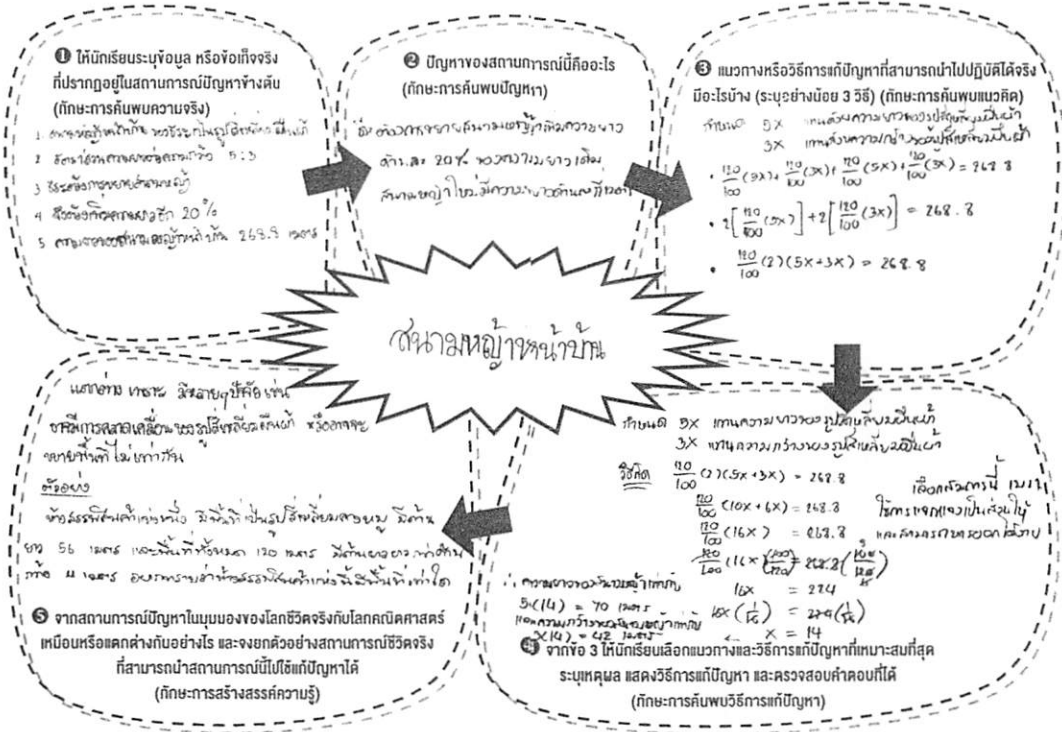 ❶ ให้นักเรียนระบุข้อมูล หรือข้อเท็จจริง
ที่ปรากฏอยู่ในสถานการณ์ปัญหาข้างต้น
(ทักษะการค้นพบความจริง)
1. สนามหญ้าหน้าบ้าน เป็นรูปสี่เหลี่ยมผืนผ้า
2 อัตราส่วนความยาวต่อความกว้าง 5:3
3 ธีระต้องการขยายสนามหญ้า
4 จึงต้องเพิ่มความยาวอีก 20%
5 ความยาวของสนามหญ้าหน้าบ้าน 268.8 เมตร
❷ ปัญหาของสถานการณ์นี้คืออะไร
(ทักษะการค้นพบปัญหา)
ต้องการขยายสนามหญ้าเพิ่มความยาว
ด้านละ 20% ของความยาวเดิม
สนามหญ้าใหม่มีความยาวด้านละกี่เมตร
❸ แนวทางหรือวิธีการแก้ปัญหาที่สามารถนำไปปฏิบัติได้จริง
มีอะไรบ้าง (ระบุอย่างน้อย 3 วิธี) (ทักษะการค้นพบแนวคิด)
กำหนด 5X แทนด้วยความยาวของรูปสี่เหลี่ยมผืนผ้า
3X แทนด้วยความกว้างของรูปสี่เหลี่ยมผืนผ้า
• 120/100 (3x) + 120/100 (5x) + 120/100 (3x) = 268.8
• 2[120/100 (5x)] + 2[120/100 (3x)] = 268.8
• 120/100 (2)(5x+3x) = 268.8
สนามหญ้าหน้าบ้าน
กำหนด 5X แทนความยาวของรูปสี่เหลี่ยมผืนผ้า
3X แทนความกว้างของรูปสี่เหลี่ยมผืนผ้า
วิธีคิด 120/100 (2)(5x+3x) = 268.8
120/100 (10x+6x) = 268.8
120/100 (16x) = 268.8
เลือกสมการนี้ เพราะ
ใช้การแจกแจงเป็นส่วนให้
16x = 224
∴ ความยาวของสนามหญ้าเท่ากับ
5(14) = 70 เมตร
และความกว้างของสนามหญ้าเท่ากับ
3(14) = 42 เมตร
x = 14
❹ จากข้อ 3 ให้นักเรียนเลือกแนวทางและวิธีการแก้ปัญหาที่เหมาะสมที่สุด
ระบุเหตุผล แสดงวิธีการแก้ปัญหา และตรวจสอบคำตอบที่ได้
(ทักษะการค้นพบวิธีการแก้ปัญหา)
แตกต่าง เพราะ มีหลายๆปัจจัย เช่น
อาจมีการคลาดเคลื่อนของรูปสี่เหลี่ยมผืนผ้า หรืออาจจะ
ขยายพื้นที่ไม่เท่ากัน
ตัวอย่าง
ห้างสรรพสินค้าแห่งหนึ่ง มีพื้นที่เป็นรูปสี่เหลี่ยมคางหมู มีด้าน
ยาว 56 เมตร และพื้นที่ทั้งหมด 120 เมตร มีด้านยาวยาวกว่าด้าน
อยากทราบว่าห้างสรรพสินค้าแห่งนี้มีพื้นที่เท่าใด
❺ จากสถานการณ์ปัญหาในมุมมองของโลกชีวิตจริงกับโลกคณิตศาสตร์
เหมือนหรือแตกต่างกันอย่างไร และจงยกตัวอย่างสถานการณ์ชีวิตจริง
ที่สามารถนำสถานการณ์นี้ไปใช้แก้ปัญหาได้
(ทักษะการสร้างสรรค์ความรู้)